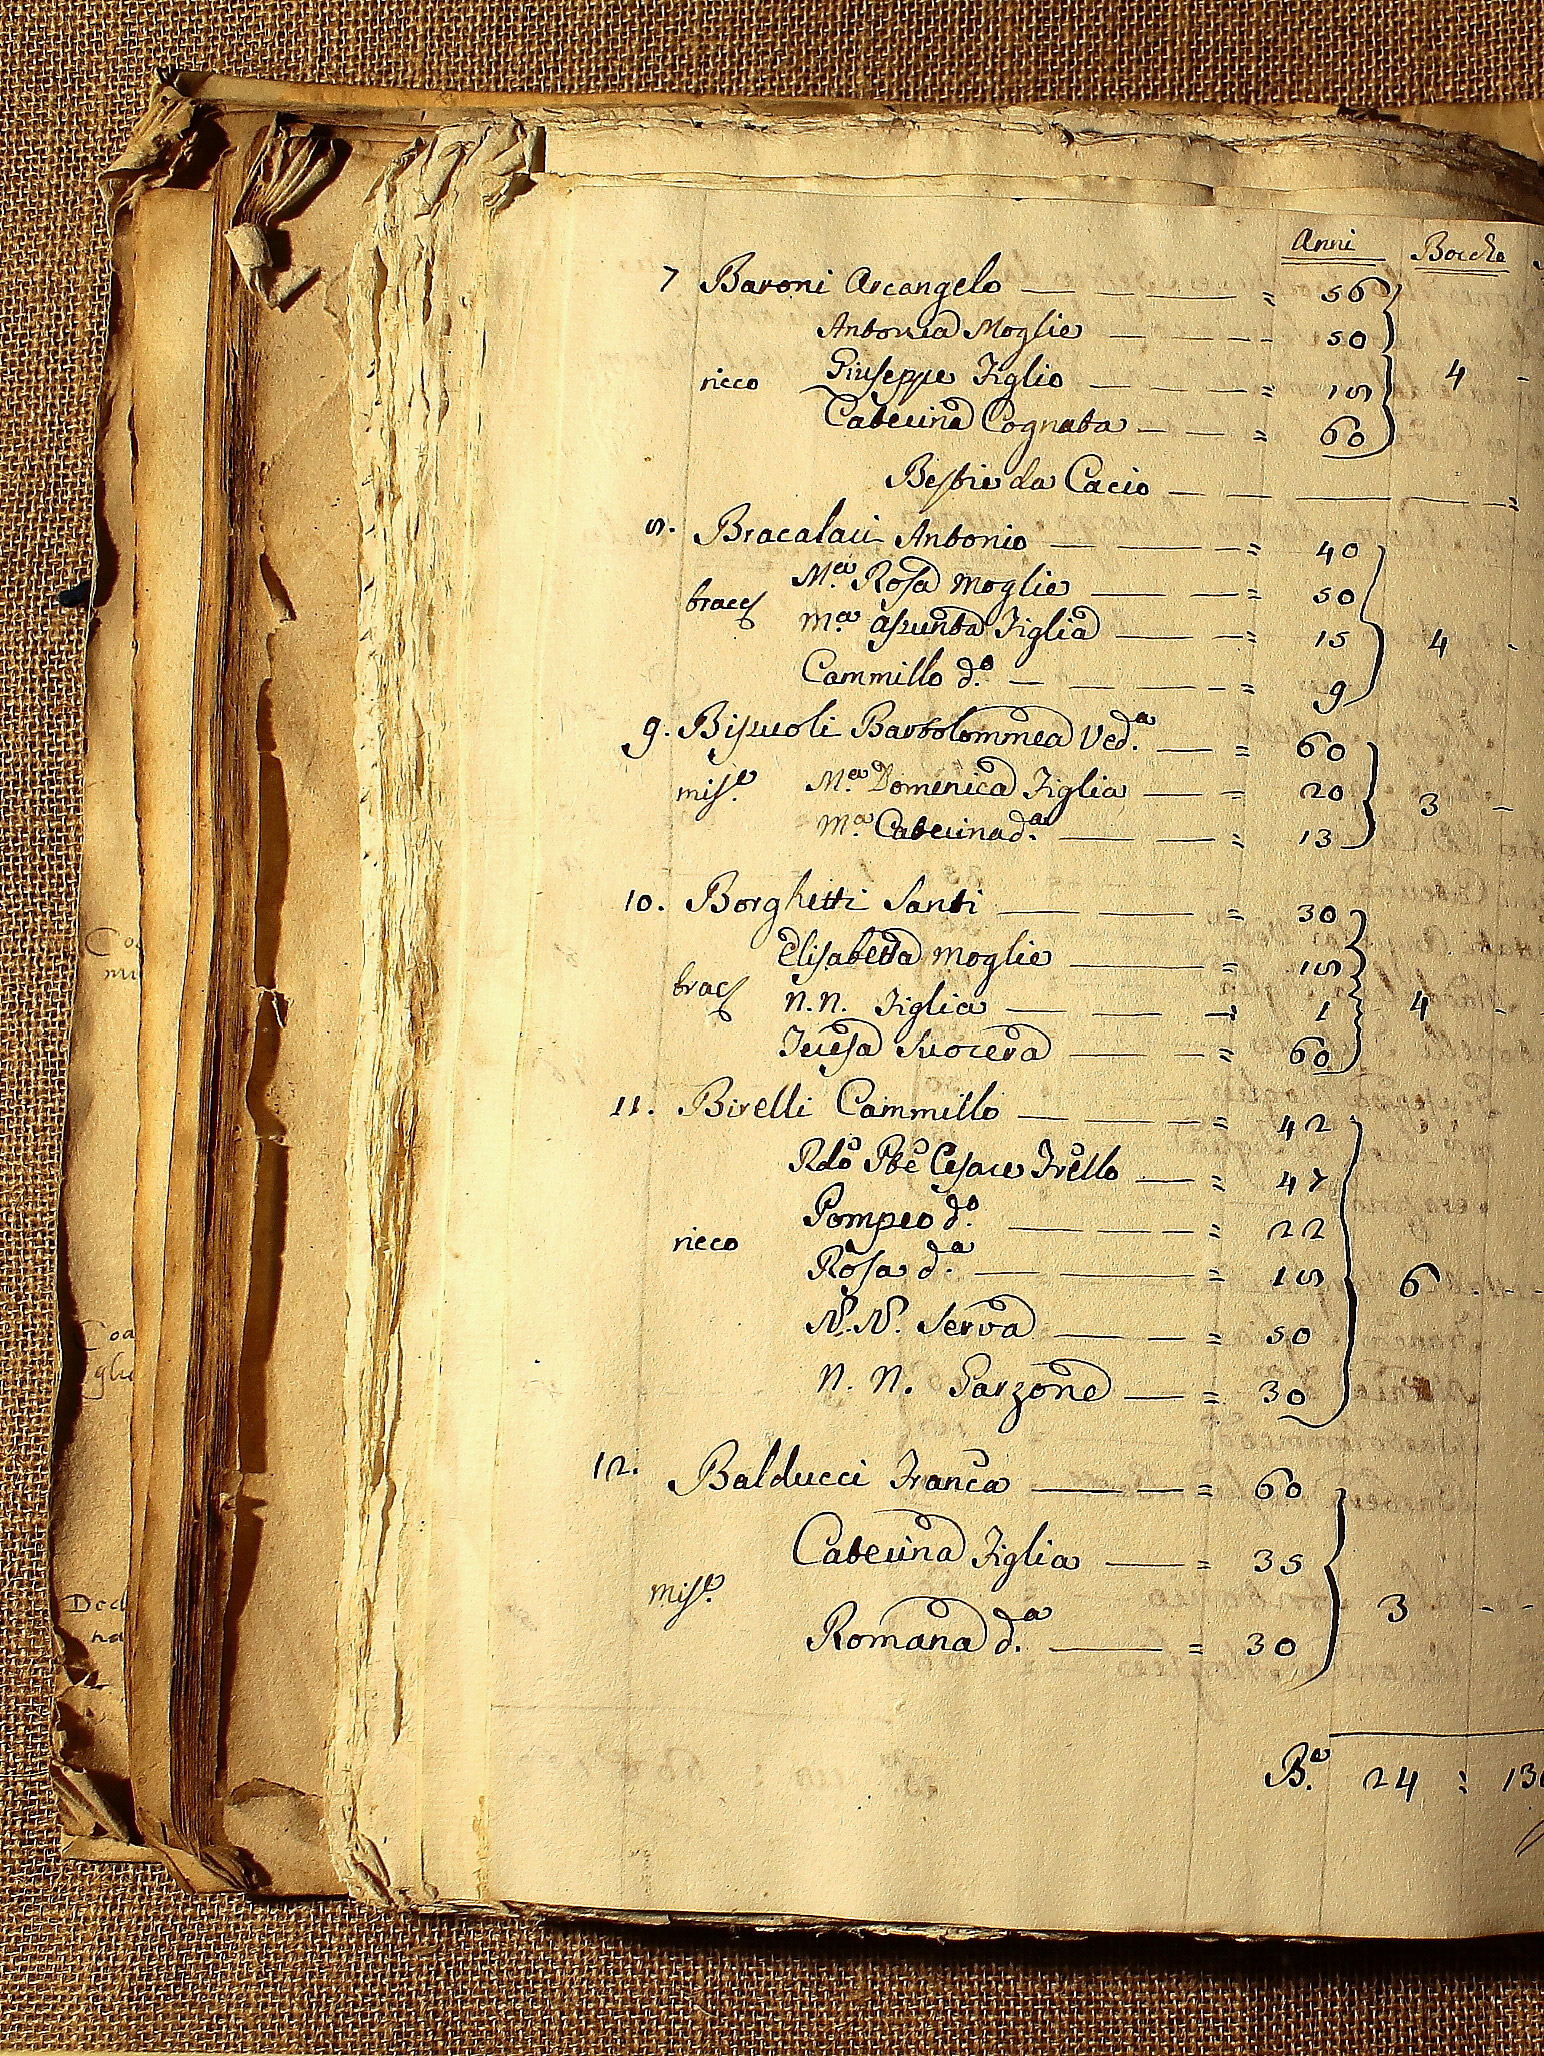 Anni Bocche
7 Baroni Arcangelo — — — — = 56
Antonia Moglie — — — - 50
ricco Giuseppe Figlio — — — = 18 4 -
Caterina Cognata — — — = 60
Bestie da Cacio — — — — — =
8. Bracalari Antonio — — — = 40
M.ª Rosa Moglie — — — = 50
bracc
m.ª Assunta Figlia — — = 15 4 -
Cammillo d.º — — — — = 9
9. Bartolommea Ved.ª — = 60
mis.e M.ª Domenica Figlia — — = 20 3 -
m.ª Caterina d.ª — — — = 13
10. Borghetti Santi — — = 30
Elisabetta moglie — — = 18
brac N.N. Figlia — — — 1 4 -
Teresa Suocera — — — = 60
11. Birelli Cammillo — — — = 42
Rdo Pbe Cesare Frello — = 47
Pompeo d.º — — — = 22
ricco
Rosa d.ª — — = 18 6 - -
N.N. Serva — — = 50
N. N. Garzone — = 30
12. Balducci Franca — = 60
Caterina Figlia — = 35
mis.e 3 - -
Romana d.ª — = 30
B.ª 24 : 13